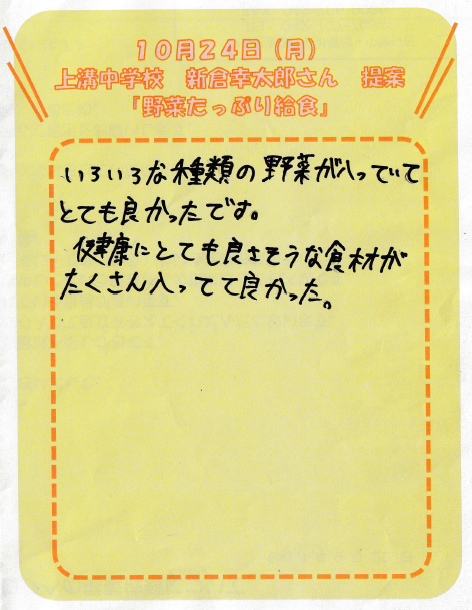 10月24日（月）
上溝中学校　新倉幸太郎さん　提案
「野菜たっぷり給食」
いろいろな種類の野菜が入っていて
とても良かったです。
健康にとても良さそうな食材が
たくさん入ってて良かった。